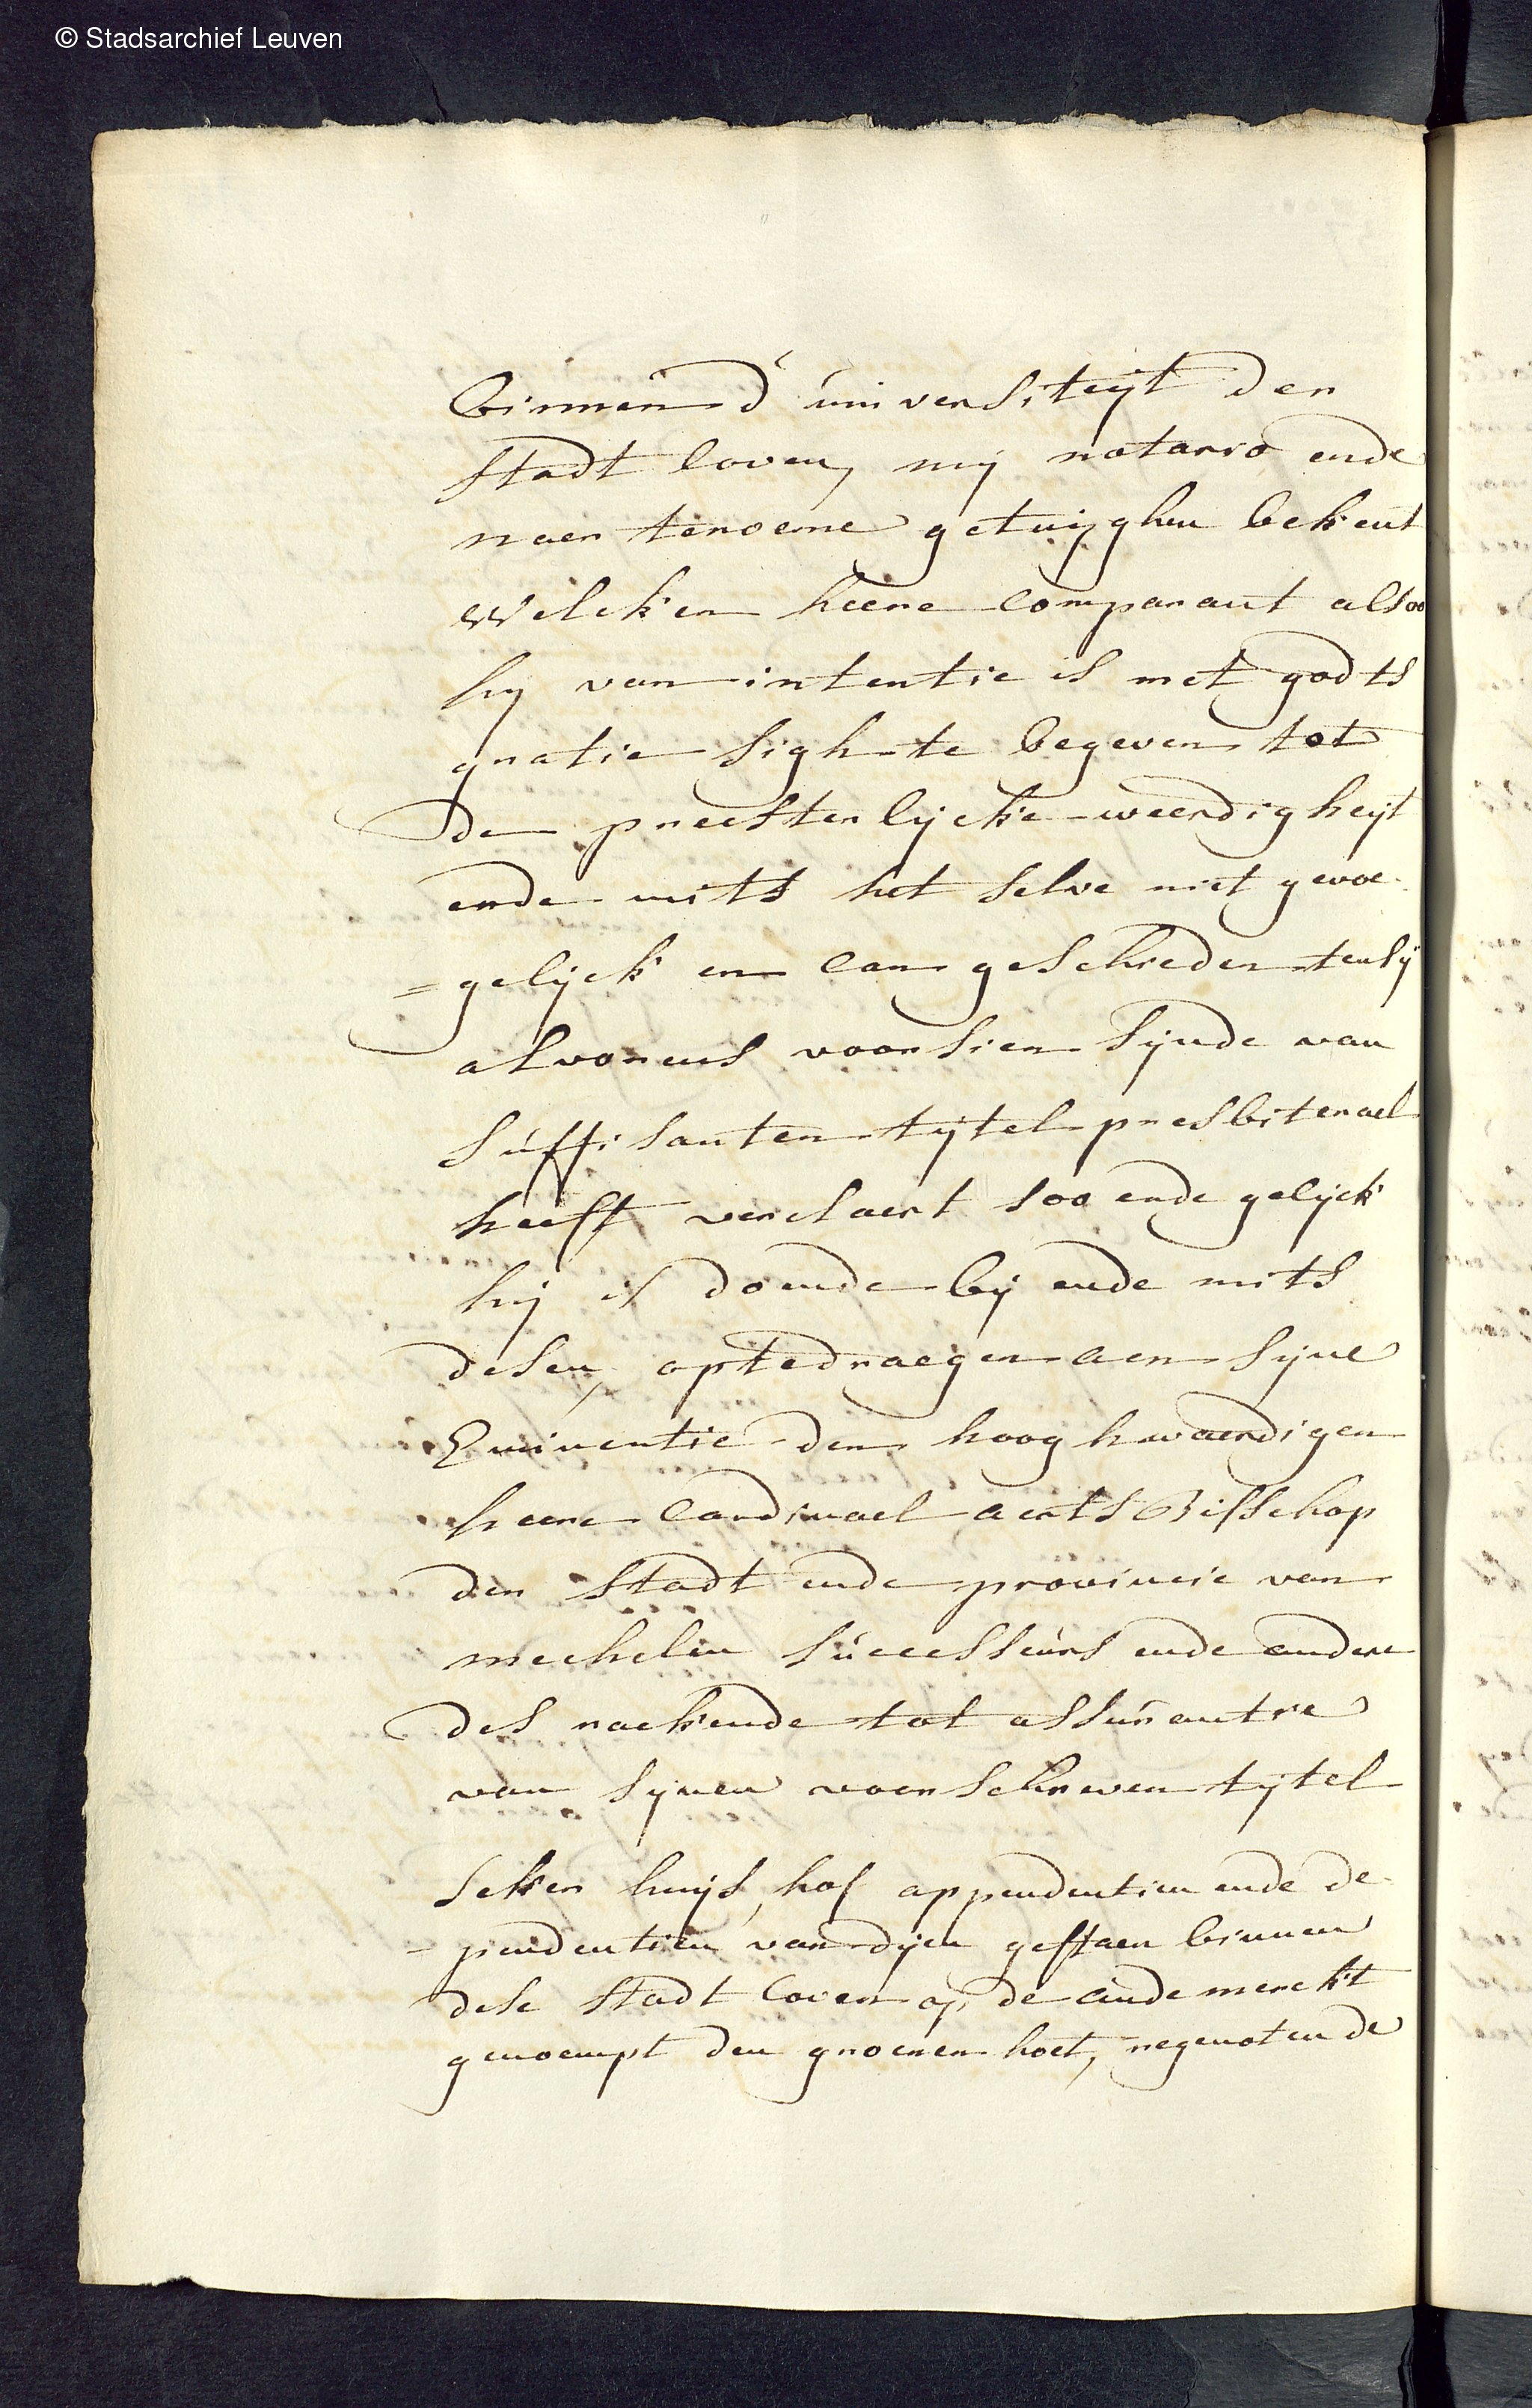 © Stadsarchief Leuven
binnen d'universiteijt der
stadt loven, mij notario ende
naer tenoeme getuijghen bekent
Welcken heere comparant alsoo
hij van intentie is met godts
gratie sigh te begeven tot
de preesterlijcke weerdigheijt
ende mits het selve niet gevoe-
=gelijck en can geschieden tensij
alvorens voorsien sijnde van
suffisanten tijtel presbiterael
heeft verclaert soo ende gelijck
hij is doende bij ende mits
desen, optedraegen aen sijne
Eminentie den hooghwaerdigen
heere Cardinael aertsBisschop
der stadt ende provincie van
mechelen successeurs ende andere
des raekende tot assurantie
van sijnen voorschreven tijtel
seker huijs, hof appendentien ende de-
-pendentien van dijen gestaen binnen
dese stadt loven op de aude merckt
genoempt den groenen hoet, regenotende